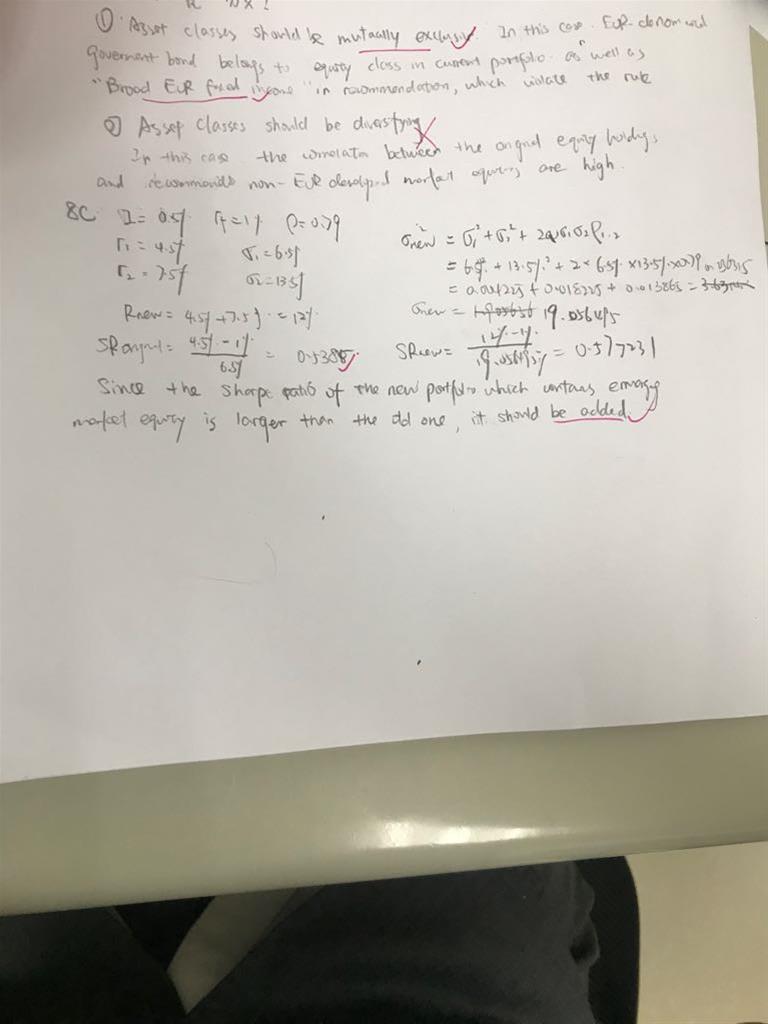 ① Asset classes should be mutually exclusive. In this case. EUR-denominated
government bond belongs to equity class in current portfolio. as well as
"Broad EUR fixed income" in recommendation, which violate the rule
② Asset classes should be diversifying
In this case the correlation between the original equity holdings
and recommends non-EUR developed market equities are high.
8C I = 0.5% rf = 1% ρ = 0.79
r1 = 4.5% σ1 = 6.5%
r2 = 7.5% σ2 = 13.5%
σ²new = σ1² + σ2² + 2 σ1σ2ρ1.2
= 6.5%² + 13.5%² + 2 × 6.5% × 13.5% × 0.79
= 0.004225 + 0.018225 + 0.013865 =
Rnew = 4.5% + 7.5% = 12%
σnew = 19.056495
SRoriginal = 4.5% - 1% / 6.5% = 0.5385
SRnew = 12% - 1% / 19.056495% = 0.577231
Since the sharpe ratio of the new portfolio which contains emerging
market equity is larger than the old one, it should be added.